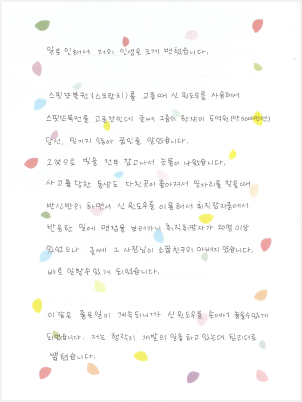 일로 인해서 저의 인생은 크게 변했습니다.
스핏또복권(스크란치)를 고를때 신 윈도우를 사용해서
스핏또복권을 고르었던데 글쎄 그중의 한장이 5억원(약5000만엔)
당첨. 믿기지 않아 꿈인줄 알았습니다.
그것으로 빚을 전부 갚고나서 눈물이 나왔습니다.
사고를 당한 동생도 다친곳이 좋아져서 일자리를 찾을때
반신반의 하면서 신 윈도우를 이용해서 취직잡지중에서
반응한 일에 면접을 보러가니 취직희망자가 20명 이상
있었으나 글쎄 그 사장님이 소꿉친구의 아버지였습니다.
바로 일할수있게 되었습니다.
이 같은 좋은일이 계속되니까 신 윈도우를 손에서 놓을수없게
되었습니다. 저는 행락지 개발의 일을 하고 있는데 팀리더로
뽑혔습니다.